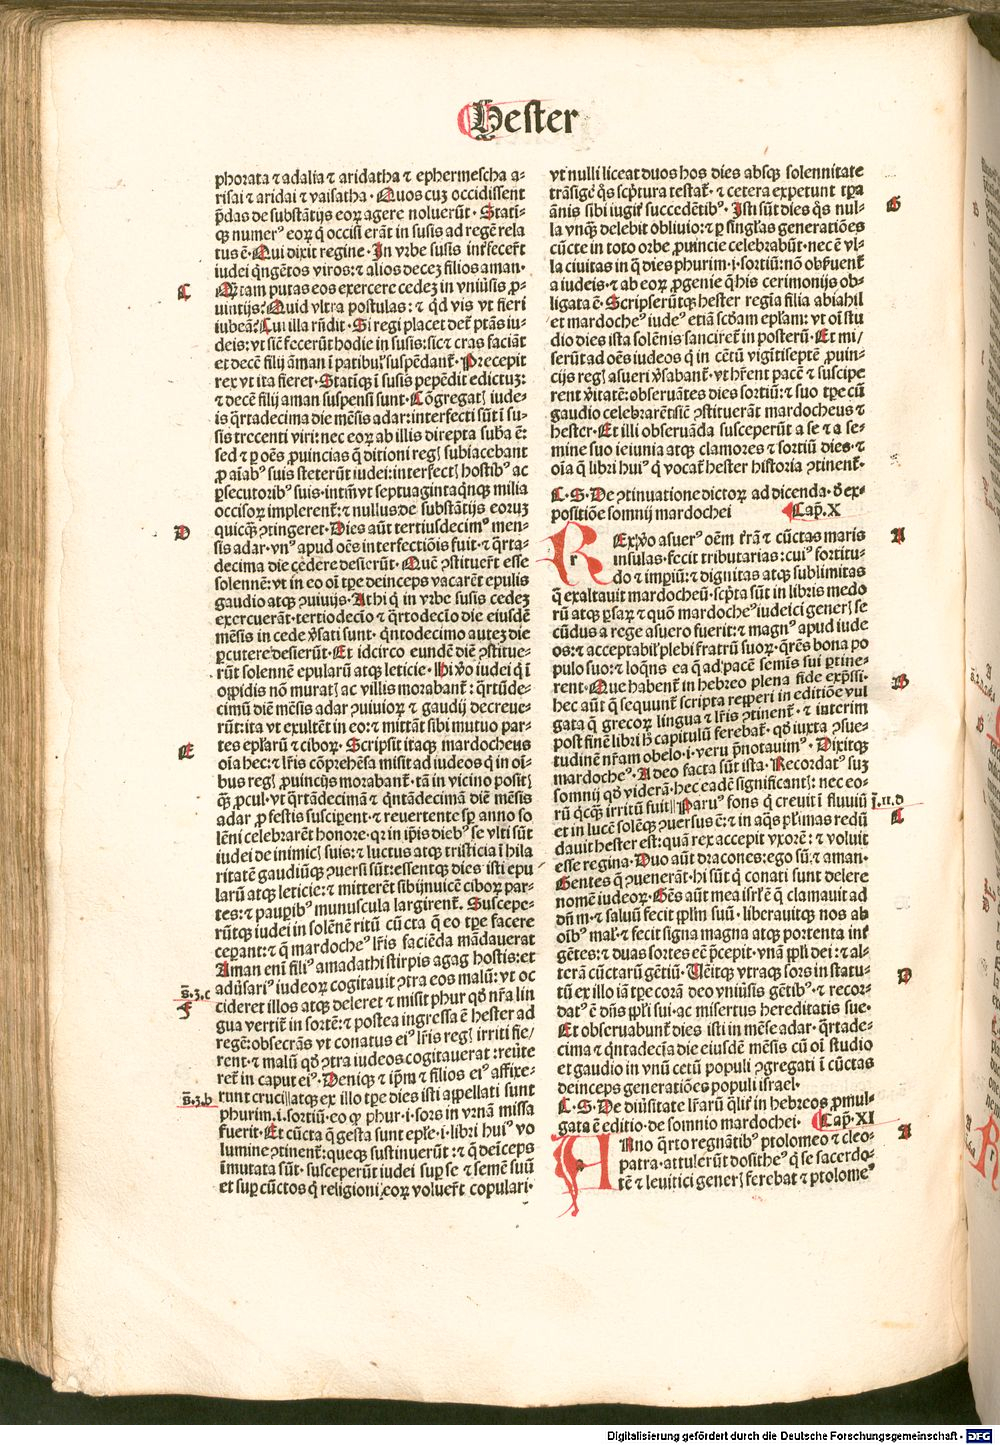 Hester
phorata ⁊ adalia ⁊ aridatha ⁊ ephermescha a-
risai ⁊ aridai ⁊ vaisatha · Quos cuꝫ occidissent
p̄das de substātijs eoꝝ agere noluerūt · Stati-
qꝫ numerꝰ eoꝝ q̇ occisi erāt in susis ad regē rela
tus ē · Qui dixit regine · In vrbe susis int̄fecer̄t
iudei q̇ngētos viros: ⁊ alios deceꝫ filios aman ·
C
Q̄tam putas eos exercere cedeꝫ in vniūsis ꝓ-
uintijs? Quid vltra postulas: ⁊ qd̄ vis vt fieri
iubeā? Cui illa rn̄dit · Si regi placet det̄ ptās iu-
deis: vt sic̄ fecerūt hodie in susis: sic ⁊ cras faciāt
et decē filij aman ī patibulꝭ suspēdant̄ · Precepit
rex vt ita fieret · Statiqꝫ ī susis pepēdit edictuꝫ:
⁊ decē filij aman suspensi sunt · Cōgregatꝭ iude-
is q̄rtadecima die mēsis adar: interfecti sūt ī su-
sis trecenti viri: nec eoꝝ ab illis direpta sub̄a ē:
sed ⁊ ꝑ oēs ꝓuincias q̄ ditioni regꝭ subiacebant
ꝓ aīabꝰ suis steterūt iudei: interfectꝭ hostibꝰ ac
ꝑsecutoribꝰ suis · intm̄ vt septuaginta q̇nqꝫ milia
occisoꝝ implerent̄: ⁊ nullus de substātijs eoruꝫ
D
quicqꝫ ꝯtingeret · Dies aūt tertiusdecimꝰ men-
sis adar · vnꝰ apud oēs interfectiōis fuit · ⁊ q̄rta-
decima die cedere desierūt · Quē ꝯstituer̄t esse
solennē: vt in eo oī tꝑe deinceps vacarēt epulis
gaudio atqꝫ ꝯuiuijs · At hi q̇ in vrbe susis cedeꝫ
exercuerāt · tertiodecīo ⁊ q̄rtodecīo die eiusdē
mēsis in cede v̄sati sunt · q̇ntodecimo auteꝫ die
ꝑcutere desierūt · Et idcirco eundē diē ꝯstitue-
rūt solennē epularū atqꝫ leticie · Hi v̄o iudei q̇ ī
oppidis nō muratꝭ ac villis morabant̄ · q̄rtūde-
cimū diē mēsis adar ꝯuiuioꝝ ⁊ gaudij decreue-
rūt: ita vt exultēt in eo: ⁊ mittāt sibi mutuo par-
E
tes epl̄arū ⁊ ciboꝝ · Scripsit itaqꝫ mardocheus
oīa hec: ⁊ lr̄is cōp̄hēsa misit ad iudeos q̇ in oī-
bus regꝭ ꝓuincijs morabant̄ · tā in vicino positꝭ
q̄ꝫ ꝓcul · vt q̄rtādecimā ⁊ q̇ntādecimā diē mēsis
adar ꝓ festis susciꝑent · ⁊ reuertente sꝑ anno so
lēni celebrarēt honore · qꝛ in ip̄is diebꝰ se vlti sūt
iudei de inimicꝭ suis: ⁊ luctus atqꝫ tristicia ī hila
ritatē gaudiūqꝫ ꝯuersi sūt: essentqꝫ dies isti epu
larū atqꝫ leticie: ⁊ mitterēt sibi inuicē ciboꝝ par-
tes: ⁊ pauꝑibꝰ munuscula largirent̄ · Suscepe-
rūtqꝫ iudei in solēnē ritū cūcta q̄ eo tꝑe facere
ceperant: ⁊ q̄ mardocheꝰ lr̄is faciēda mādauerat
Aman eni filiꝰ amadathi stirpis agag hostis: et
s̄.3.c
F
adūsariꝰ iudeoꝝ cogitauit ꝯtra eos malū: vt oc
cideret illos atqꝫ deleret ⁊ misit phur qd̄ nr̄a lin
gua vertit̄ in sortē: ⁊ postea ingressa ē hester ad
regē: obsecrās vt conatus eiꝰ lr̄is regꝭ irriti fie/
rent · ⁊ malū qd̄ ꝯtra iudeos cogitauerat: reuṫe
ret̄ in caput eiꝰ · Deniqꝫ ⁊ ip̄m ⁊ filios eiꝰ affixe-
s̄.3.b
runt cruci || atqꝫ ex illo tꝑe dies isti appellati sunt
phurim.i.sortiū · eo qꝫ phur.i.sors in vrnā missa
fuerit · Et cūcta q̄ gesta sunt epl̄e.i.libri huiꝰ vo
lumine ꝯtinent̄: queqꝫ sustinuerūt: ⁊ q̄ deīceps
īmutata sūt · susceperūt iudei suꝑ se ⁊ semē suū
et suꝑ cūctos q̇ religioni eoꝝ voluer̄t copulari ·
vt nulli liceat duos hos dies absqꝫ solennitate
trāsige q̄s sc̄ptura testat̄ · ⁊ cetera expetunt tꝑa
G
ānis sibi iugit̄ succedētibꝰ · Isti sūt dies q̄s nul-
la vnqꝫ delebit obliuio: ⁊ ꝑ singl̄as generatiōes
cūcte in toto orbe ꝓuincie celebrabūt · nec ē vl-
la ciuitas in q̄ dies phurim.i.sortiū: nō obẜuent̄
a iudeis · ⁊ ab eoꝝ ꝓgenie q̄ his cerimonijs ob-
ligata ē · Scripserūtqꝫ hester regīa filia abiahil
et mardocheꝰ iudeꝰ etiā scd̄am epl̄am: vt oī stu
dio dies ista solēnis sanciret̄ in posterū · Et mi/
serūt ad oēs iudeos q̇ in cētū vigītiseptē ꝓuin-
cijs regꝭ asueri v̄sabant̄ · vt hr̄ent pacē ⁊ suscipe
rent v̄itatē: obseruātes dies sortiū: ⁊ suo tꝑe cū
gaudio celebrarēt sic̄ ꝯstituerāt mardocheus ⁊
hester · Et illi obseruāda susceperūt a se ⁊ a se-
mine suo ieiunia atqꝫ clamores ⁊ sortiū dies · ⁊
oīa q̄ libri huiꝰ q̇ vocat̄ hester historia ꝯtinent̄ ·
C. S. De ꝯtinuatione dictoꝝ ad dicenda · ⁊ ex-
positiōe somnij mardochei Cap̄.X
A
REx v̄o asuerꝰ oēm t̄rā ⁊ cūctas maris
insulas · fecit tributarias: cuiꝰ fortitu-
do ⁊ imꝑiū: ⁊ dignitas atqꝫ sublimitas
q̄ exaltauit mardocheū · sc̄pta sūt in libris medo
rū atqꝫ ꝑsaꝝ ⁊ quō mardocheꝰ iudeici generꝭ se
cūdus a rege asuero fuerit: ⁊ magnꝰ apud iude
os: ⁊ acceptabilꝭ plebi fratrū suoꝝ · q̄rēs bona po
pulo suo: ⁊ loq̄ns ea q̄ ad pacē semīs sui ꝑtine-
B
rent · Que habent̄ in hebreo plena fide exp̄ssi ·
hec aūt q̄ sequunt̄ scripta repperi in editiōe vul
gata q̄ grecoꝝ lingua ⁊ lr̄is ꝯtinent̄ · ⁊ interim
post finē libri hꝭ capitulū ferebat̄ · qd̄ iuxta ꝯsue-
tudinē nr̄am obelo.i.veru p̄notauimꝰ · Dixitqꝫ
mardocheꝰ · A deo facta sūt ista · Recordatꝰ suꝫ
somnij qd̄ viderā · hec eadē significantꝭ: nec eo-
ī.ii.d
rū q̇cqꝫ irritū fuit || Paruꝰ fons q̇ creuit ī fluuiū
C
et in lucē solēqꝫ ꝯuersus ē: ⁊ in aq̄s pl̄imas redū
dauit hester est: quā rex accepit vxorē: ⁊ voluit
esse regina · Duo aūt dracones: ego sū: ⁊ aman ·
Gentes q̄ ꝯuenerāt · hi sūt q̇ conati sunt delere
nomē iudeoꝝ · Gēs aūt mea isrl̄ ē q̄ clamauit ad
dn̄m · ⁊ saluū fecit ppl̄m suū · liberauitqꝫ nos ab
oībꝰ malꝭ · ⁊ fecit signa magna atqꝫ portenta int̄
gētes: ⁊ duas sortes eē p̄cepit · vnā ppl̄i dei: ⁊ al-
D
terā cūctarū gētiū · Ueītqꝫ vtraqꝫ sors in statu-
tū ex illo iā tꝑe corā deo vniūsis gētibꝰ · ⁊ recor-
datꝰ ē dn̄s ppl̄i sui · ac misertus hereditatis sue ·
Et obseruabunt̄ dies isti in mēse adar · q̄rtade-
cima ⁊ q̇ntadecīa die eiusdē mēsis cū oī studio
et gaudio in vnū cetū populi ꝯgregati ī cūctas
deinceps generatiōes populi israel ·
C. S. De diūsitate lr̄arū q̄lit̄ in hebreos ꝓmul-
gata ē editio · de somnio mardochei · Cap̄.XI
A
ANno q̄rto regnātibꝰ ptolomeo ⁊ cleo-
patra · attulerūt dositheꝰ q̇ se sacerdo-
tē ⁊ leuitici generꝭ ferebat ⁊ ptolomeꝰ
Digitalisierung gefördert durch die Deutsche Forschungsgemeinschaft - DFG